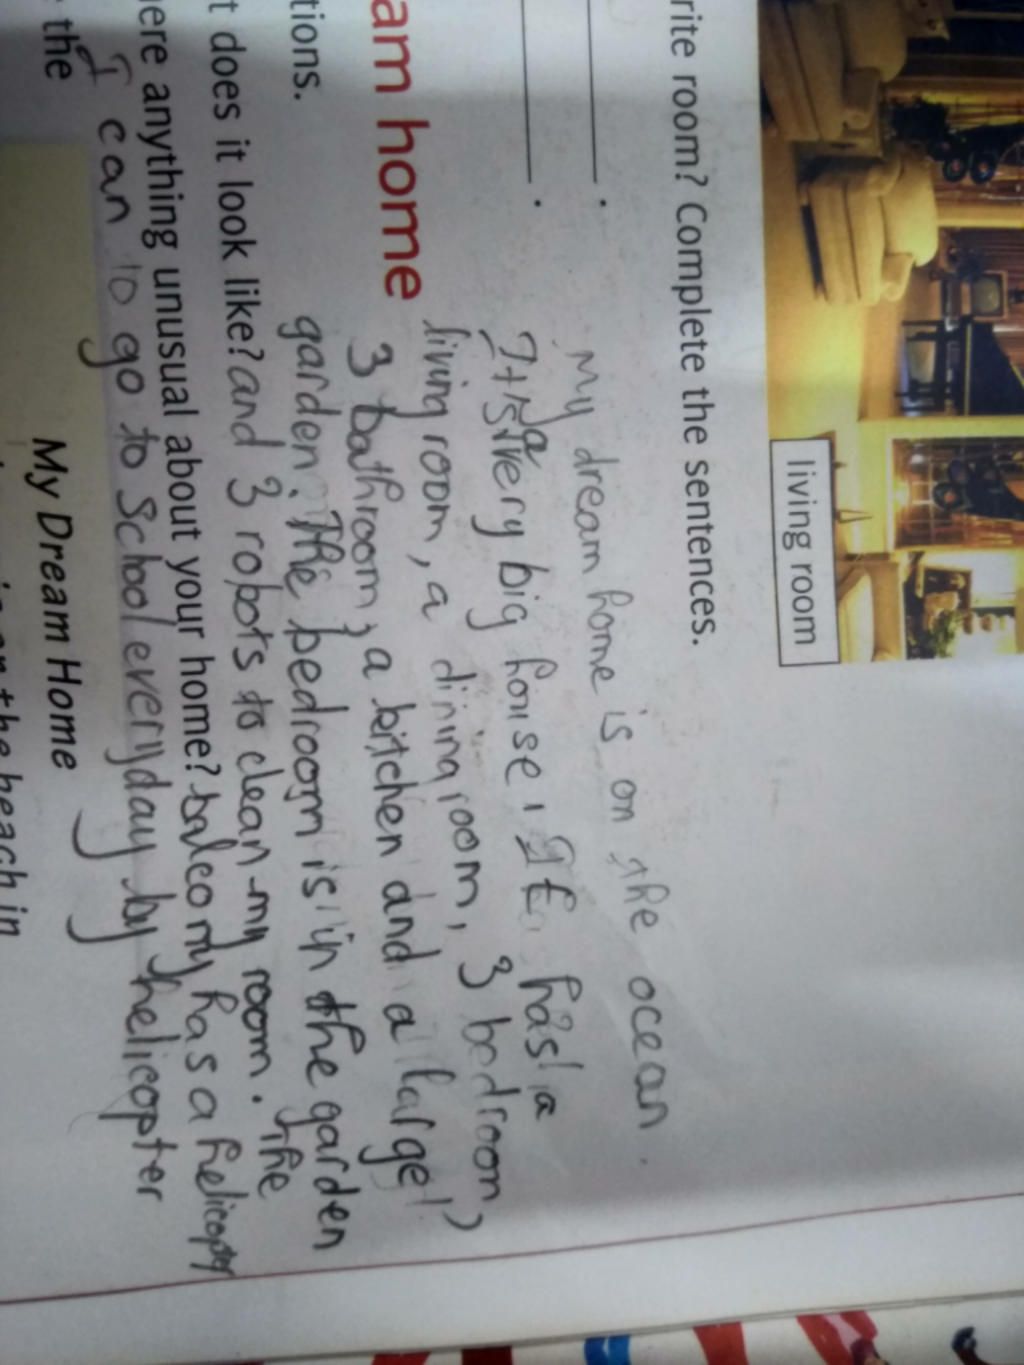 living room
rite room? Complete the sentences.
.
.
My dream home is on the ocean.
It is a very big house. It has a
living room, a dining room, 3 bedroom,
am home
3 bathroom, a kitchen and a large
tions.
garden. The bedroom is in the garden
t does it look like?
and 3 robots to clean my room. The
ere anything unusual about your home?
balcomy has a helicopter
the
I can to go to School everyday by helicopter
My Dream Home
on the beach in